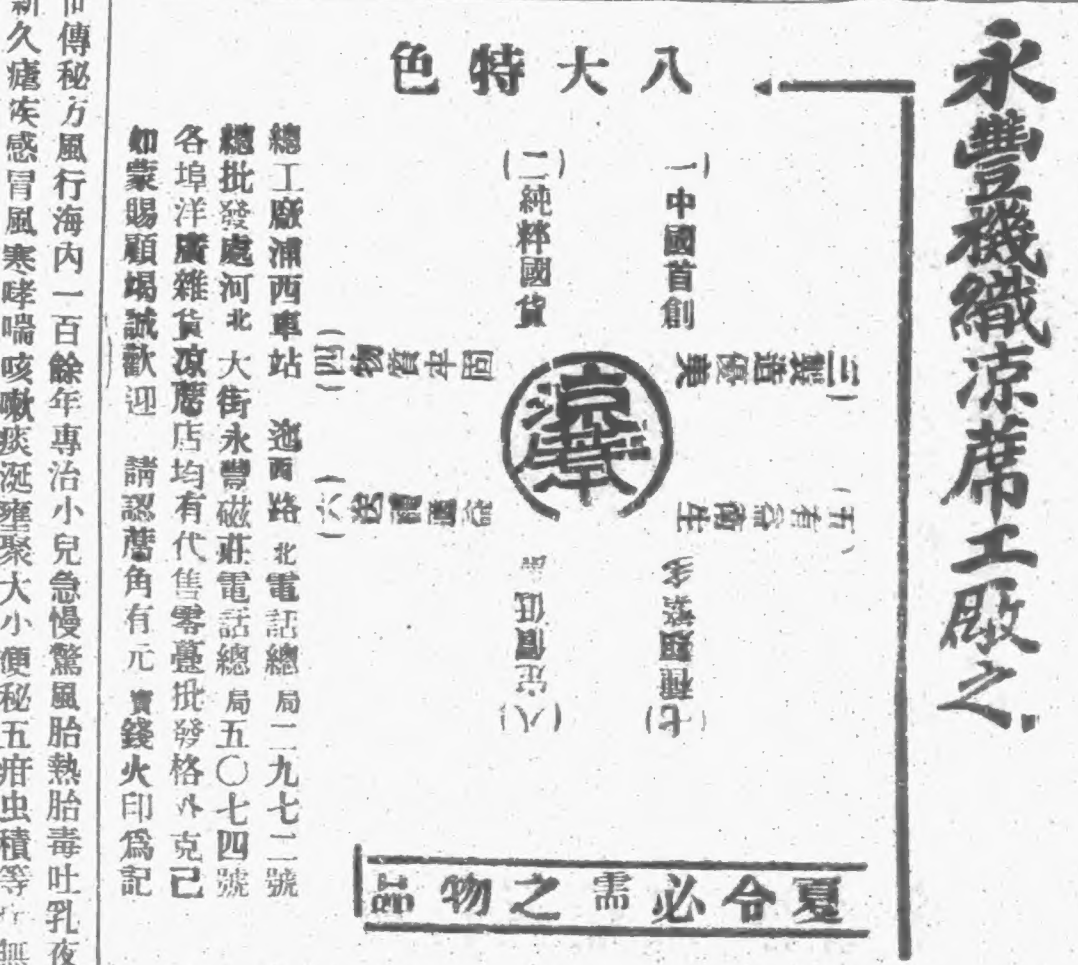 永豐機織涼蓆工廠之
八大特色
(一)中國首創
(二)純粹國貨
(三)製造優美
(四)物質牢固
(五)有益衛生
(六)送禮
(七)種類繁多
(八)定價低
涼蓆
夏令必需之物品
總工廠浦西車站迤西路北電話總局二九七二號
總批發處河北大街永豐磁莊電話總局五〇七四號
各埠洋廣雜貨凉蓆店均有代售零躉批發格外克己
如蒙賜顧竭誠歡迎 請認蓆角有元寶錢火印爲記
傳秘方風行海內一百餘年專治小兒急慢驚風胎熱胎毒吐乳夜
新久瘧疾感冒風寒哮喘咳嗽痰涎壅聚大小便秘五疳虫積等